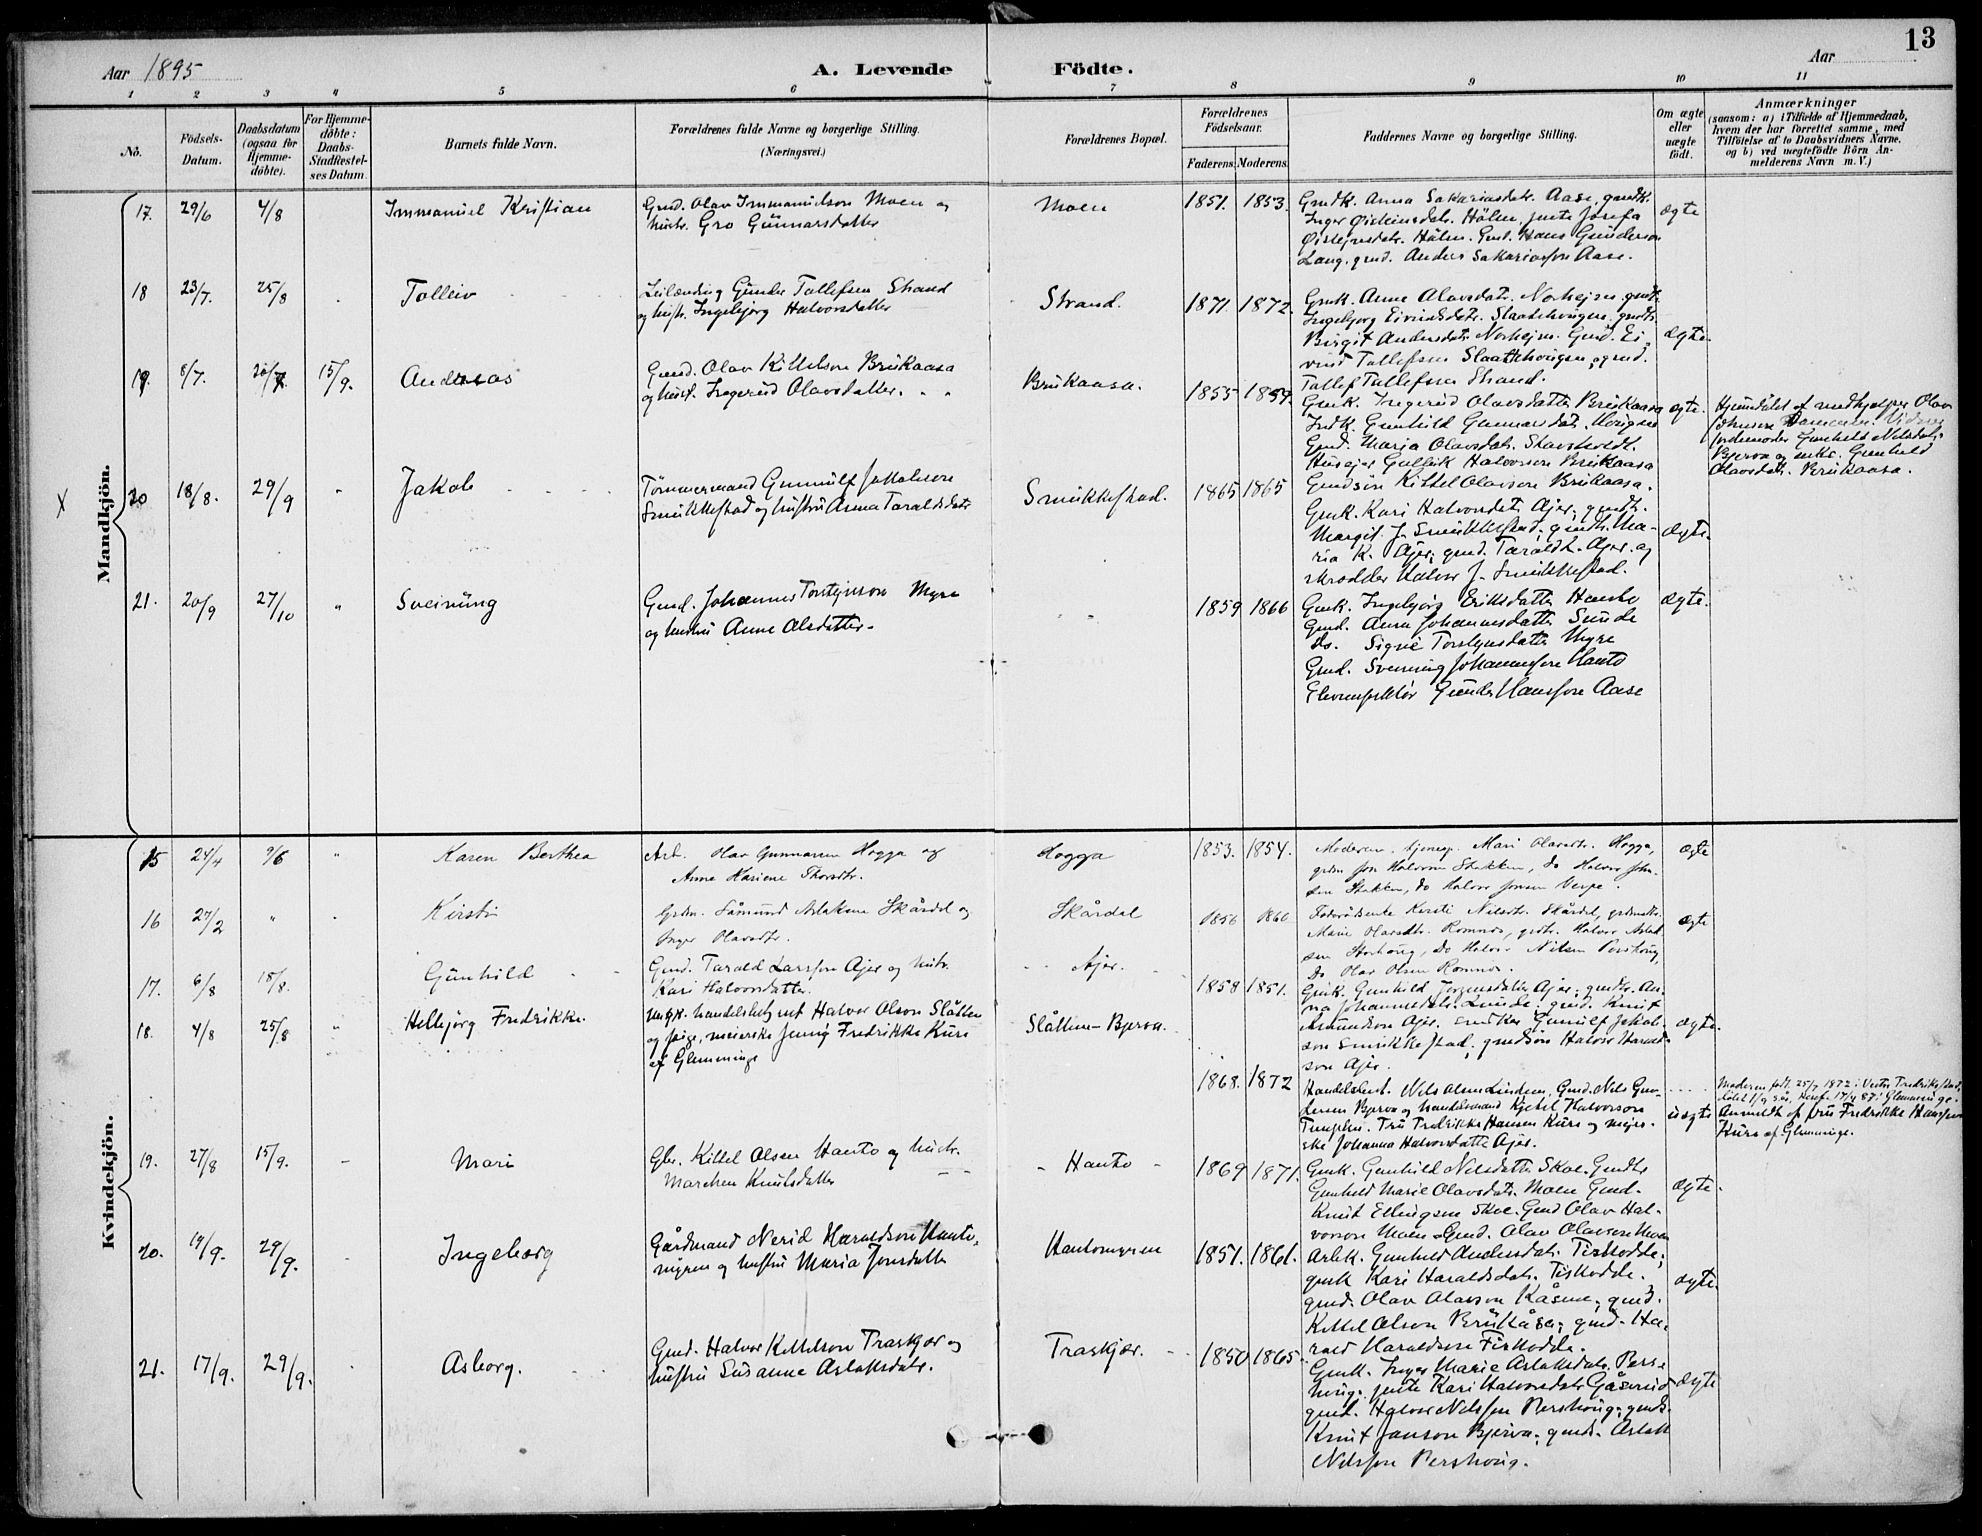 13
Aar 1895
A. Levende Födte.
Aar
1 2 3 4 5 6 7 8 9 10 11
No.
Födsels-Datum.
Daabsdatum (ogsaa for Hjemme-döbte).
For Hjemme-döbte: Daabs-Stadfæstel-ses Datum.
Barnets fulde Navn.
Forældrenes fulde Navne og borgerlige Stilling. (Næringsvei.)
Forældrenes Bopæl.
Forældrenes Födselsaar.
Faderens. Moderens.
Faddernes Navne og borgerlige Stilling.
Om ægte eller uægte födt.
Anmærkninger
(saasom: a) i Tilfælde af Hjemmedaab,
hvem der har forrettet samme, med
Tilföielse af to Daabsvidners Navne,
og b) ved uægtefödte Börn An-
melderens Navn m. V.)
Mandkjön.
17. 29/6 4/8 Immanuel Kristian
Gmd. Olav Immanuelson Moen og
hustr. Gro Gunnarsdatter
Moen 1851. 1853.
Gmdk. Anna Sakariasdatr. Aase, gmdtr.
Inger Øisteinsdatr. Hölen, jente Josefa
Øistejnsdatr. Hölen. Gmd. Hans Gunderson
Lang, gmd. Anders Sakariasson Aase.
ægte
18 23/7. 25/8 Tolleiv
Leilænding Gunder Tollefsen Strand
og hustr. Ingebjørg Halvorsdatter
Strand. 1871. 1872.
Gmk. Anne Olavsdatr. Norhejm. gmdtr.
Ingebjørg Eivindsdatr. Slaattehougen, gmdtr.
Birgit Andersdatr. Norhejm. Gmd. Ei-
vind Tollefsen Slaattehougen, gmd.
Tollef Tollefsen Strand.
ægte.
19. 8/7. 15/9. Andreas
Gmd. Olav Kittelson Brukaasa
og hust. Ingerid Olavsdatter.
Brukaasa. 1855 1859.
Gmk. Ingerid Olavsdatter Brukaasa
Indk. Gunhild Gunnarsdatr. Hougen
Gmd. Maria Olavsdatr. Stavsholdt.
Husejer Gullik Halvorson Brukaasa
Gmdsön Kittel Olavson Brukaasa.
ægte.
Hjemdöbt af medhjælper Olav
Johnson
jordemoder Gunhild Nilsdatr.
Bjerva og enke. Gunhild
Olavsdatr. Brukaasa.
X 20 18/8. 29/9 " Jakob
Tømmermand Gunnulf Jakobson
Smukkestad og hustru Anna Taraldsdatr.
Smukkestad. 1865 1865
Gmk. Kari Halvorsdatr. Ajer, gmdtr.
Margit J. Smukkestad, gmdtr. Ma-
ria K. Ajer, gmd. Tarald L. Ajer. og
skrædder Halvor J. Smukkestad.
ægte.
21. 20/9 27/10 " Sveinung
Gmd. Johannes Torstejnson Myre
og hustru Anne Olsdatter.
" 1859 1866
Gmk. Ingebjørg Eriksdatter Hanto
Gmd. Anna Johannesdatter Sunde
Do. Signe Torstejnsdatter Myre
Gmd. Sveinung Johannesson Hanto
Gunder Hansson Aase
ægte.
Kvindekjön.
15 24/4 9/6 " Karen Berthea
Arb. Olav Gunnarsen Hogga og
Anne Mariene Thorsdtr.
Hogga 1853. 1854.
Moderen. Mari Olavsdtr. Hogga,
gdm Jon Halvorsen Stokken, do Halvor John-
sen Stokken, do Halvor Jonsen Verpe.
ægte
16 27/2 " Kirsti
Gdm. Såmund Aslaksen Skårdal og
Inger Olavsdtr.
Skårdal 1856 1860
Kirsti Nilsdtr. Skårdal,
Marie Olavsdtr. Romnes, Halvor Aslak-
sen Do Halvor Nilsen
Do Olav Olsen Romnes.
ægte
17. 6/8 18/8. Gunhild
Gmd. Tarald Larsson Ajer og hustr.
Kari Halvorsdatter.
Ajer. 1858 1851.
Gmk. Gunhild Jørgensdatr. Ajer, gmdtr. An-
na Johannesdatr. Lunde, gmd. Knut
Amundson Ajer. snedker Gunnulf Jakob-
son Smukkestad, gmdsön Halvor Harald-
son Ajer.
ægte.
18. 4/8 25/8 " Helbjørg Fredrikke.
Ungk. handelsbetjent Halvor Olson Slåtten
og pige, meierske Jenny Fredrikke Kure
af Glemminge
Slåtten - Bjerva. 1868. 1872
Handelsbest. Nils Olsen Linden, Gmd. Nils Gun-
dersen Bjerva og handelsmand Kjetil Halvorson
Fru Fredrikke Hansen Kure og mejer-
ske Johanna Halvorsdatter Ajer.
uægte
Moderen født 25/7 1872
Anmeldt af fru Fredrikke Hansen
Kure af Glemminge.
19. 27/8 15/9. - Mari
Gbr. Kittel Olsen Hanto og hustr.
Maren Knutsdatter
- Hanto - 1869 1871.
Gmk. Gunhild Nilsdatter Skoe. Gmdtr
Gunhild Marie Olavsdatr. Moen Gmd.
Knut Ellingsen Skoe. Gmd Olav Hal-
vorson Moen Gmd. Olav Olavson Moen
ægte.
20. 14/9. 29/9. Ingeborg
Gårdmand Nerid Haraldson Hanto-
myren og hustru Maria Jonsdatter
Hantomyren 1851. 1861.
Arbk. Gunhild Andersdatr. Fiskodde,
gmk Kari Haraldsdatr. Fiskodde.
gmd. Olav Olavson Kåsene, gmd.
Kittel Olson Brukåsa, gmd. Ha-
rald Haraldson Fiskodde.
ægte.
21. 17/9. 29/9. Asborg.
Gmd. Halvor Kittelson Traskjær og
hustru Susanne Aslaksdatr.
Traskjær. 1850 1865.
Gmk. Inger Marie Aslaksdatr. Pers-
houg, jente Kari Halvorsdatr Gåserud
gmd. Halvor Nilsson Pershoug, gmds.
Knut Janson Bjerva, gmds. Aslak
Nilsson Pershoug.
ægte